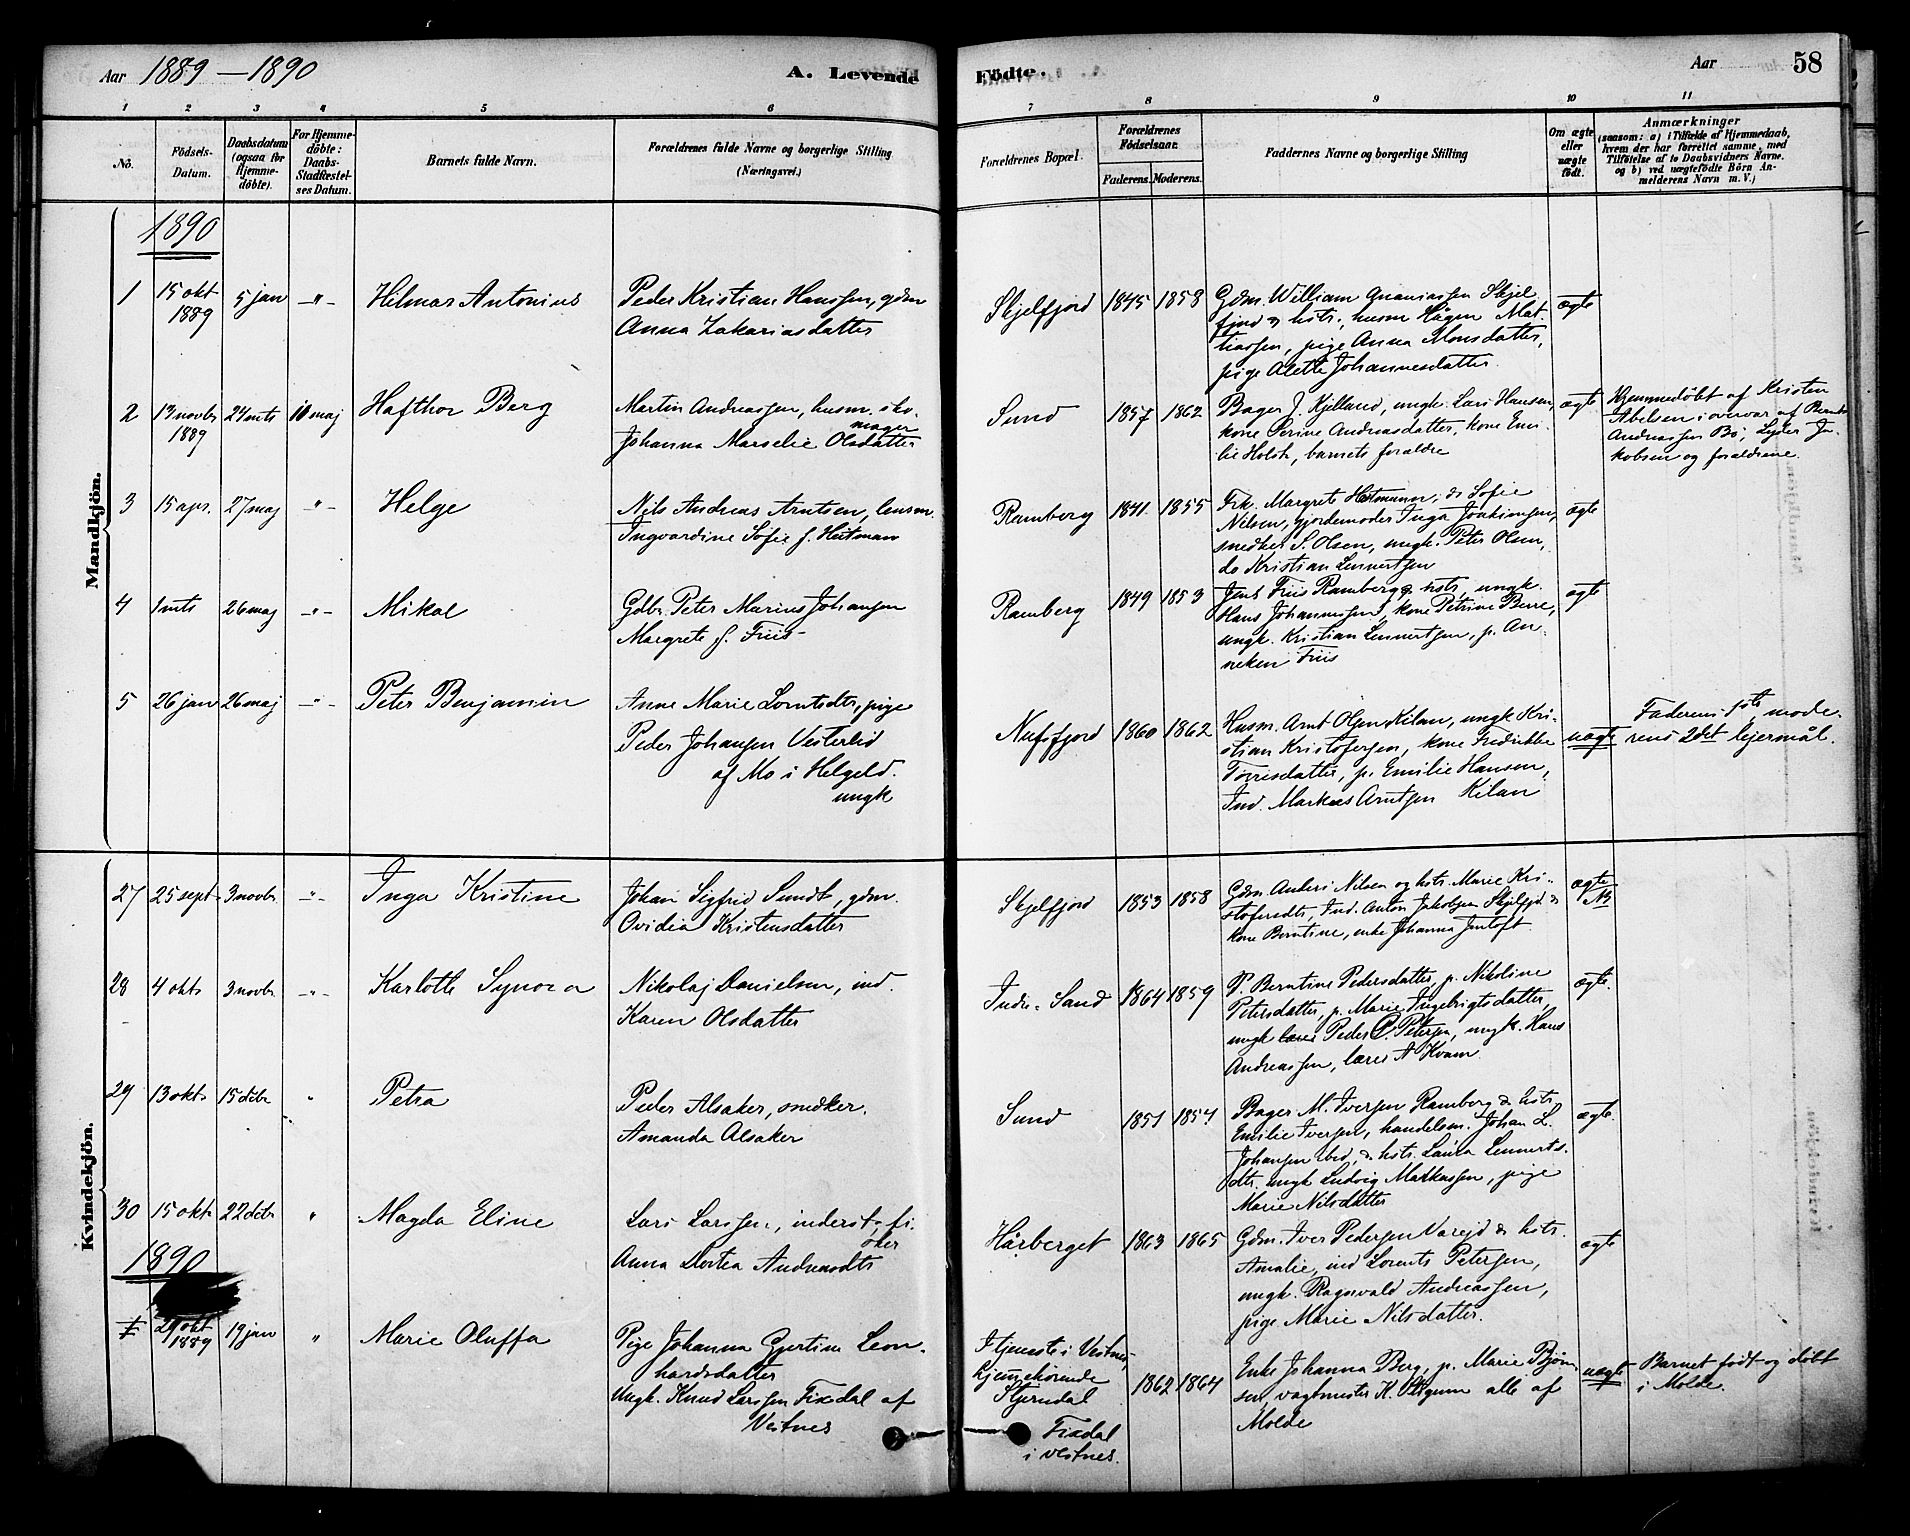 Aar 1889-1890
A. Levende
Födte.
Aar
58
1 2 3 4 5 6 7 8 9 10 11
No.
Födsels-
Datum.
Daabsdatum
(ogsaa for
Hjemme-
döbte).
For Hjemme-
döbte:
Daabs-
Stadfæstel-
ses Datum.
Barnets fulde Navn.
Forældrenes fulde Navne og borgerlige Stilling
(Næringsvei.)
Forældrenes Bopæl.
Forældrenes
Födselsaar.
Faderens. Moderens.
Faddernes Navne og borgerlige Stilling
Om ægte
eller
uægte
födt.
Anmærkninger
(saasom: a) i Tilfælde af Hjemmedaab,
hvem der har forrettet samme, med
Tilföielse af to Daabsvidners Navne.
og b) ved uægtefödte Börn An-
melderens Navn m. V.)
Mandkjön.
1890
1
15 okt
1889
5 jan
-"-
Hilmar Antonius
Peder Kristian Hanssen, gdm
Anna Zakariasdatter
Skjelfjord
1845 1858
Gdm. William Ananiassen Skjel
fjord & hstr., husm Hågen Mat
tiassen, pige Anna Monsdatter,
pige Alette Johannesdatter.
ægte
2
13 novbr
1889
24 mts
10 maj
Hafthor Berg
Martin Andreassen, husm. sko
mager
Johanna Marselie Olsdatter
Sund
1857 1862
Bager J. Kjelland, ungk. Lars Hansen,
kone Serine Andreasdatter, kone Emi
lie Holst, barnets forældre
ægte
Hjemmedøbt af Kristen
Abelsen i overvær af Bernt
Andreassen Bø, Lyder Ja-
kobsen og forældrene.
3
15 apr.
27 maj
-"-
Helge
Nils Andreas Arntsen, lensm.
Ingvardine Sofie f. Heitman
Ramberg
1841 1855
Frk. Margrete Heitmann, do Sofie
Nilsen, gjordemoder Inga Joakimsen,
snedker S. Olsen, ungk. Peter Olsen,
do Kristian Lennertsen
ægte
4
1 mts
26 maj
-"-
Mikal
Gdbr. Peter Marius Johansen
Margrete f. Friis-
Ramberg
1849 1853
Jens Friis Ramberg & hstr, ungk.
Hans Johannessen, kone Petrine Berre,
ungk. Kristian Lennertsen, p. An-
neken Friis
ægte
5
26 jan
26 maj
-"-
Peter Benjamin
Anne Marie Lorntsdtr, pige
Peder Johansen Vesterlid
af Mo i Helgeld.
ungk
Nufsfjord
1860 1862
Husm. Arnt Olsen Kilan, ungk Kri-
stian Kristofersen, kone Fredrikke
Torrisdatter, p. Emilie Hansen,
Ind. Markus Arntsen Kilan
uægte
Faderens 1ste mode-
rens 2det lejermål.
Kvindekjön.
27
25 sept
3 novbr.
-"-
Inga Kristine
Johan Sigfrid Sundt, gdm.
Ovidia Kristensdatter
Skjelfjord
1853 1858
Gdm. Anders Nilsen og hstr. Marie Kri-
stofersdtr, Ind. Anton Jakobsen Skjelfjd. &
kone Berntine, enke Johanna Jentoft.
ægte
NB
28
4 oktr
3 novbr.
-"-
Karlotte Synora
Nikolaj Danielsen, ind.
Karen Olsdatter
Indre-Sand
1864 1859
P. Berntine Pedersdatter, p. Nikoline
Petersdatter, p. Marie Ingebrigtsdatter,
ungk lærer Peder P. Petersen, ungk. Hans
Andreassen, lærer A Kvam.
ægte.
29
13 oktr
15 debr
"
Petra
Peder Alsaker, snedker.
Amanda Alsaker
Sund
1851 1854
Bager M. Iversen Ramberg & hstr
Emilie Iversen, handelsm. Johan L.
Johansen ibid, & hstr. Laura Lennerts-
dtr. ungk Ludvig Markussen, pige
Marie Nilsdatter
ægte.
30
15 okt.
22 debr
"
Magda Eline
Lars Larssen, inderst & fi-
sker
Anna Dortea Andreasdtr
Hårberget
1863 1865
Gdm. Iver Pedersen Varejd & hstr.
Amalie, ind Lorents Petersen,
ungk. Ragnvald Andreassen,
pige Marie Nilsdatter.
ægte
1890
1
29 okt
1889
19 jan
"
Marie Oluffa
Pige Johanna Gjertine Leon-
hardsdatter
Ungk. Knud Larssen Fixdal af
Vestnes
I tjeneste i Vestnes,
hjemmehørende
Stjerndal
Fixdal
i Vestnes.
1862 1864
Enke Johanna Berg, p. Marie Bjørn-
sen, vagtmester K. alle af
Molde
uægte
Barnet født og døbt
i Molde.